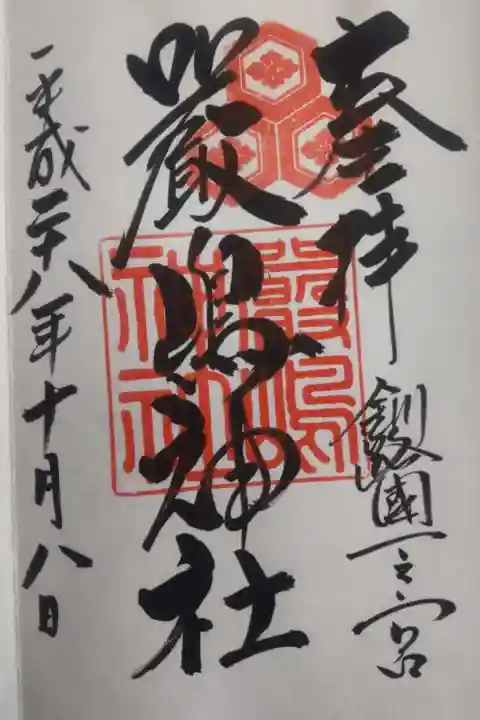 奉拝
釧路國一之宮
嚴島神社
平成二十八年十月八日
嚴島神社